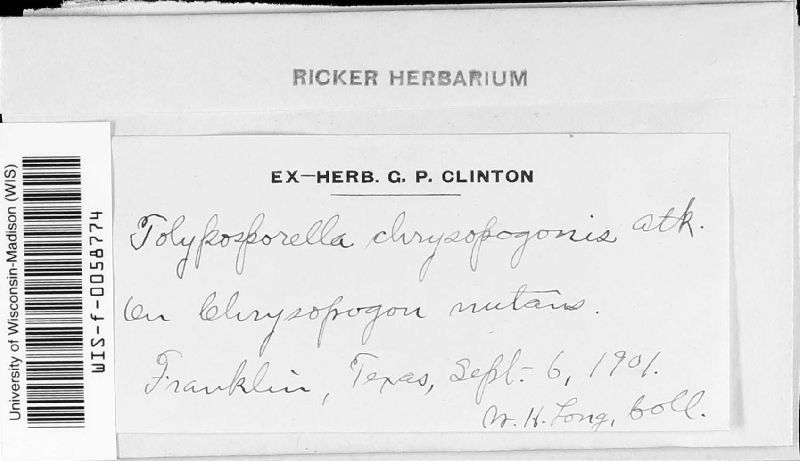 RICKER HERBARIUM
EX—HERB. G. P. CLINTON
Tolyposporella chrysopogonis Atk.
On Chrysopogon nutans.
Franklin, Texas, Sept. 6, 1901.
W. H. Long, Coll.
University of Wisconsin-Madison (WIS)
WIS-f-0058774